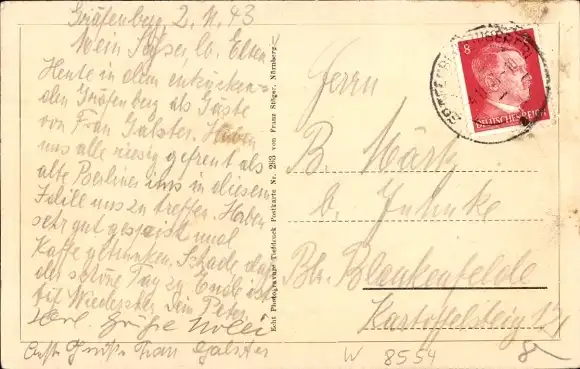 Gräfenberg 2.11.43
Mein Süßer, lb. Eltern
Heute in dem entzücken-
den Gräfenberg als Gäste
von Frau Galster. Haben
uns alle riesig gefreut als
alte Berliner uns in diesem
Idille uns zu treffen. Haben
sehr gut gespeist und
Kaffe getrunken. Schade daß
der schöne Tag zu Ende ist
Auf Wiedersehn Dein Peter.
Herzl. Grüße
Frau Galster
Echt Photogravure Tiefdruck Postkarte Nr. 263 von Franz Stöger, Nürnberg
8
DEUTSCHES REICH
Herrn
B. März
b. Juhnke
Bln. Blankenfelde
Kartoffelsteig 13
W 8554